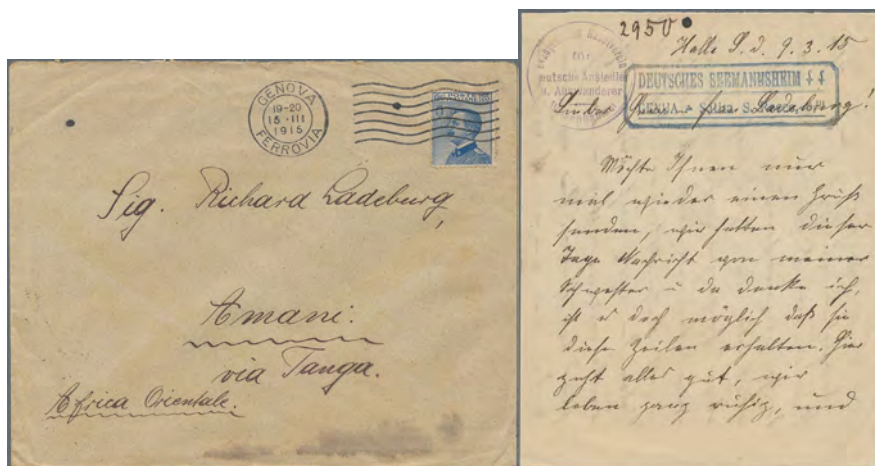 GENOVA
19-20
15·III
1915
FERROVIA
Sig. Richard Ladeburg,
Amani.
via Tanga.
Africa Orientale.
2950
Halle S. d. 9.3.15
für
u. Auswanderer
DEUTSCHES SEEMANNSHEIM
GENUA
Lieber Ladeburg!
Möchte Ihnen nur
mal wieder einen Gruß
senden, wir hatten dieser
Tage Nachricht von meiner
Schwester u da denke ich,
ist es doch möglich daß sie
diese Zeilen erhalten. Hier
geht alles gut, wir
leben ganz ruhig, und